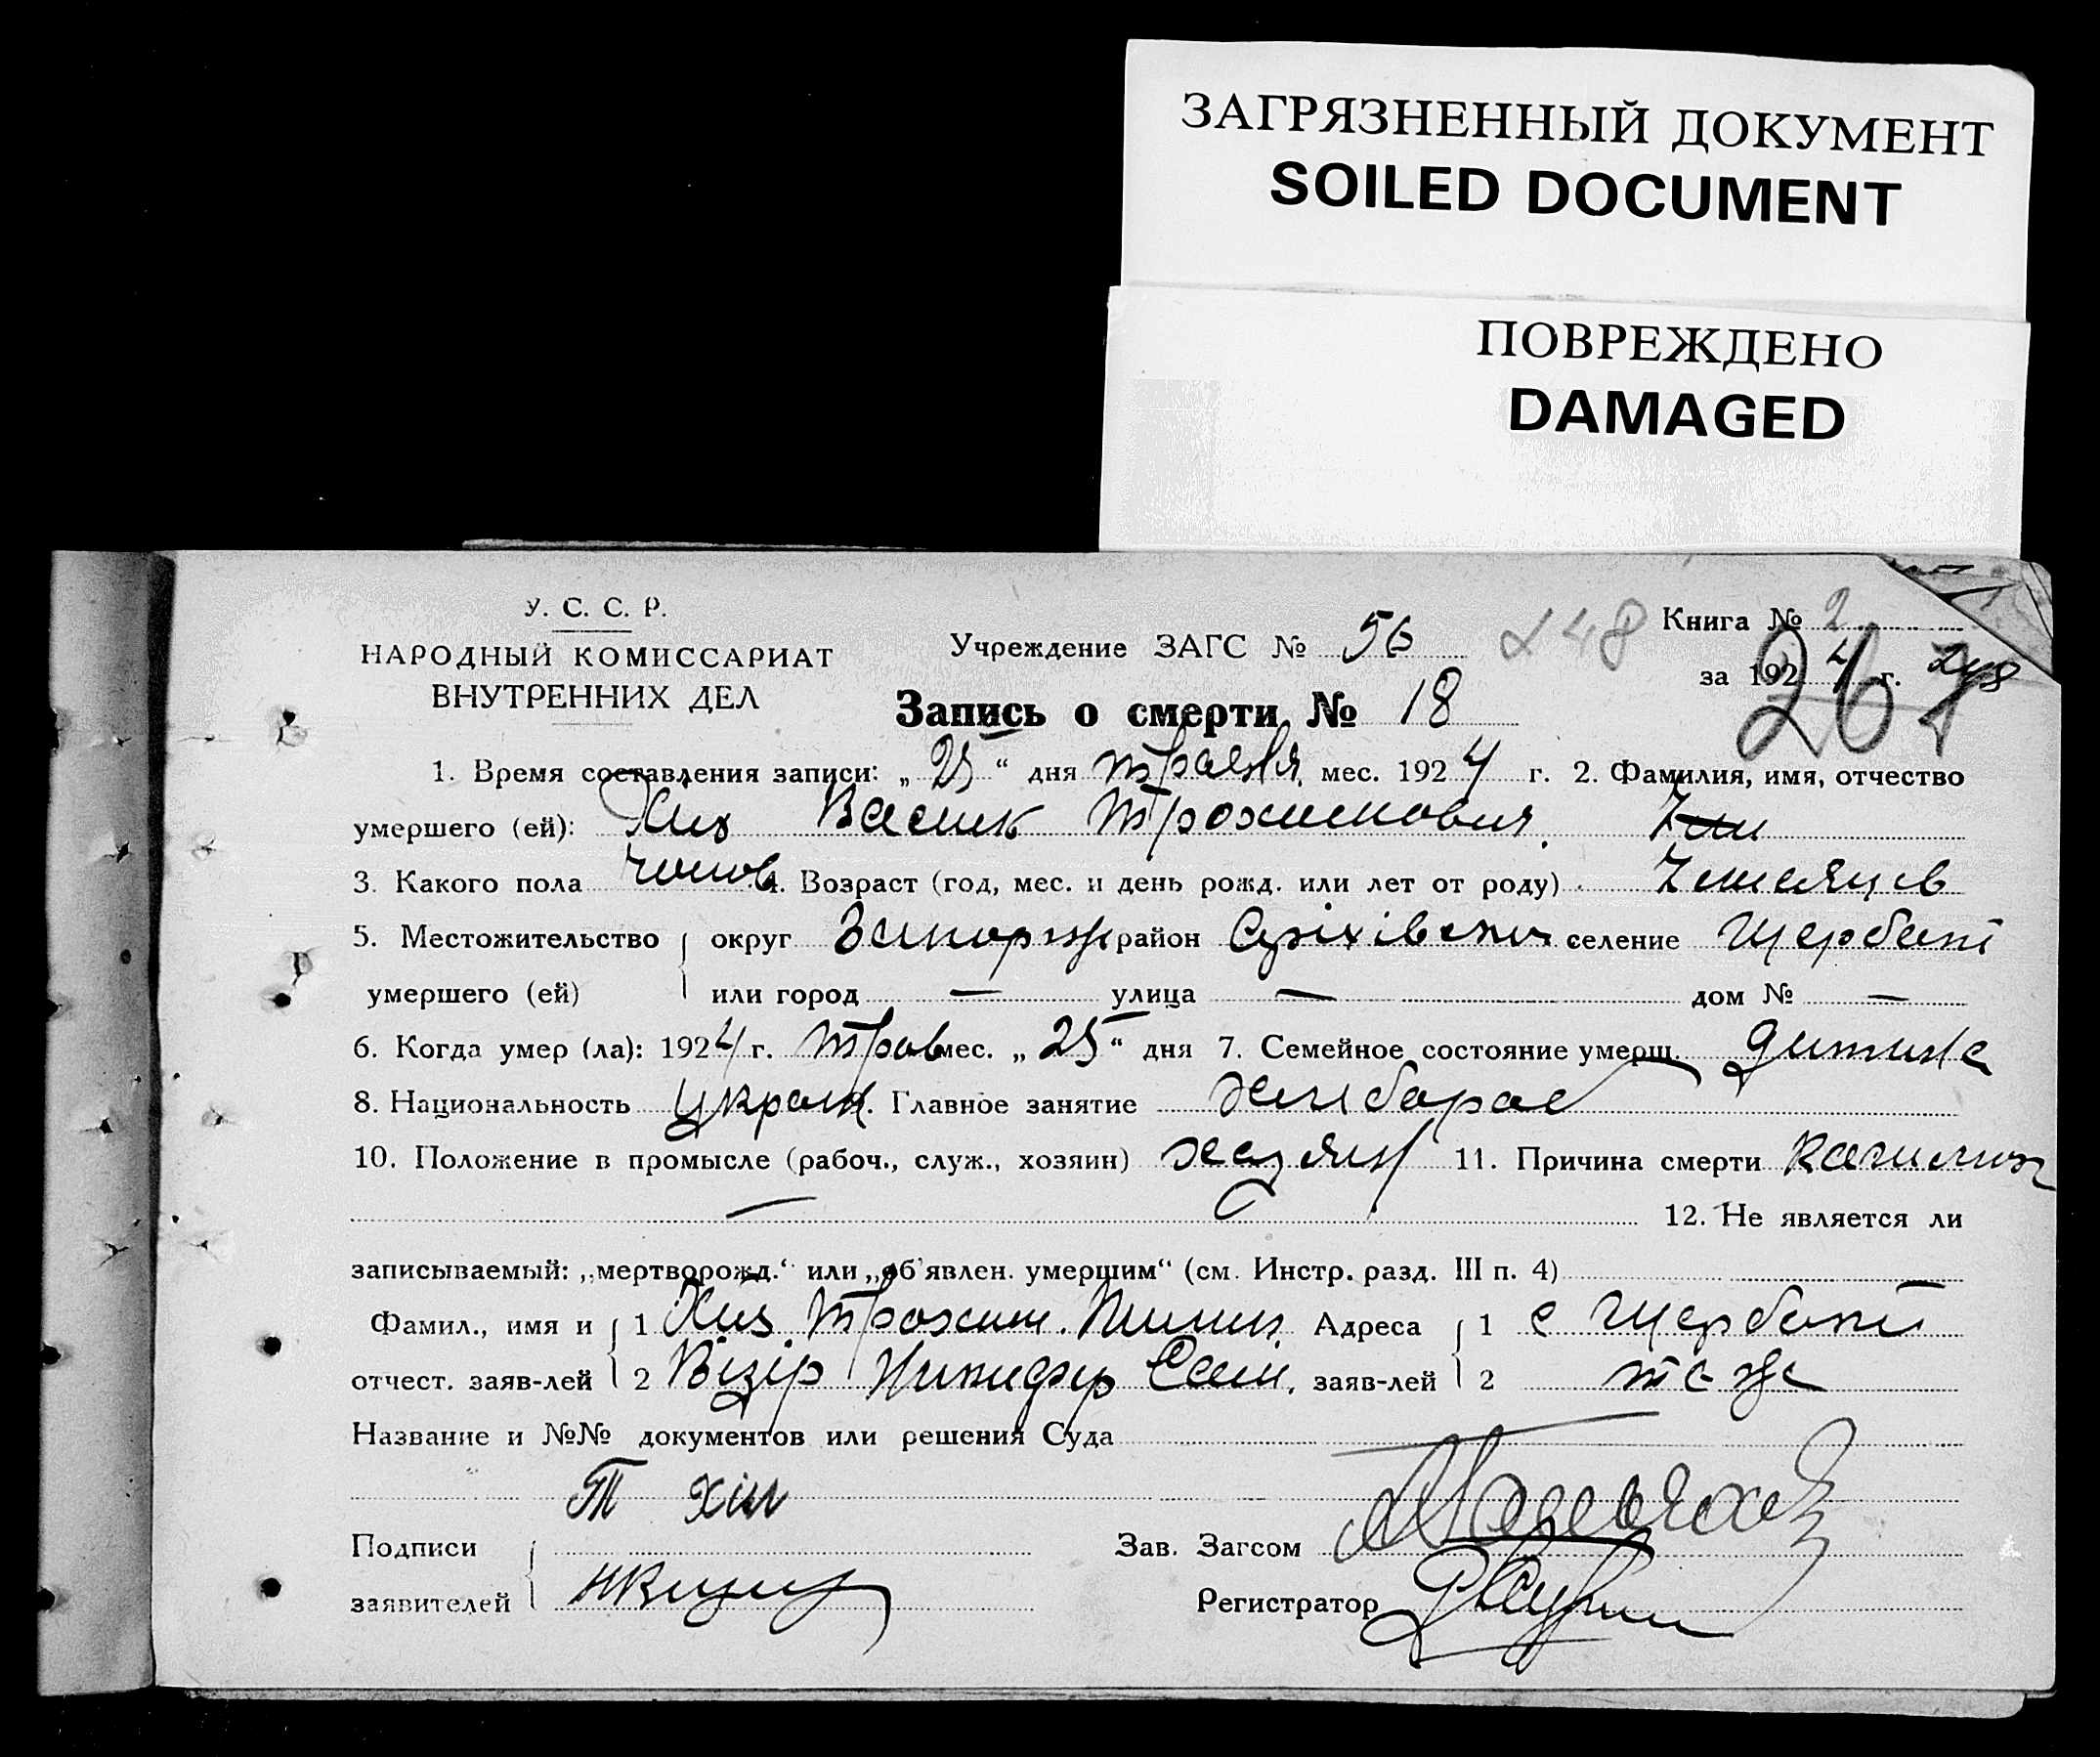 ЗАГРЯЗНЕННЫЙ ДОКУМЕНТ
SOILED DOCUMENT
ПОВРЕЖДЕНО
DAMAGED
У. С. С. Р.
НАРОДНЫЙ КОМИССАРИАТ
ВНУТРЕННИХ ДЕЛ
Учреждение ЗАГС № 56 248
Книга № 2
за 1924 г. 248
267
Запись о смерти № 18
1. Время составления записи: „25“ дня травня мес. 1924 г. 2. Фамилия, имя, отчество
умершего (ей): Василь Трохимович
3. Какого пола чолов 4. Возраст (год, мес. и день рожд. или лет от роду) 7 месяців
5. Местожительство округ Запоріж район Оріхівськ селение Щербаки
умершего (ей) или город — улица — дом № —
6. Когда умер (ла): 1924 г. трав мес. „25“ дня 7. Семейное состояние умерш. дитина
8. Национальность україн. Главное занятие хлібороб
10. Положение в промысле (рабоч., служ., хозяин) хазяин 11. Причина смерти
— 12. Не является ли
записываемый: „мертворожд.“ или „об'явлен. умершим“ (см. Инстр. разд. III п. 4)
Фамил., имя и 1 Трохим Адреса 1 с Щербаки
отчест. заяв-лей 2 Візір Никифор заяв-лей 2 те же
Название и №№ документов или решения Суда
Т Хім
Подписи Зав. Загсом
заявителей Регистратор